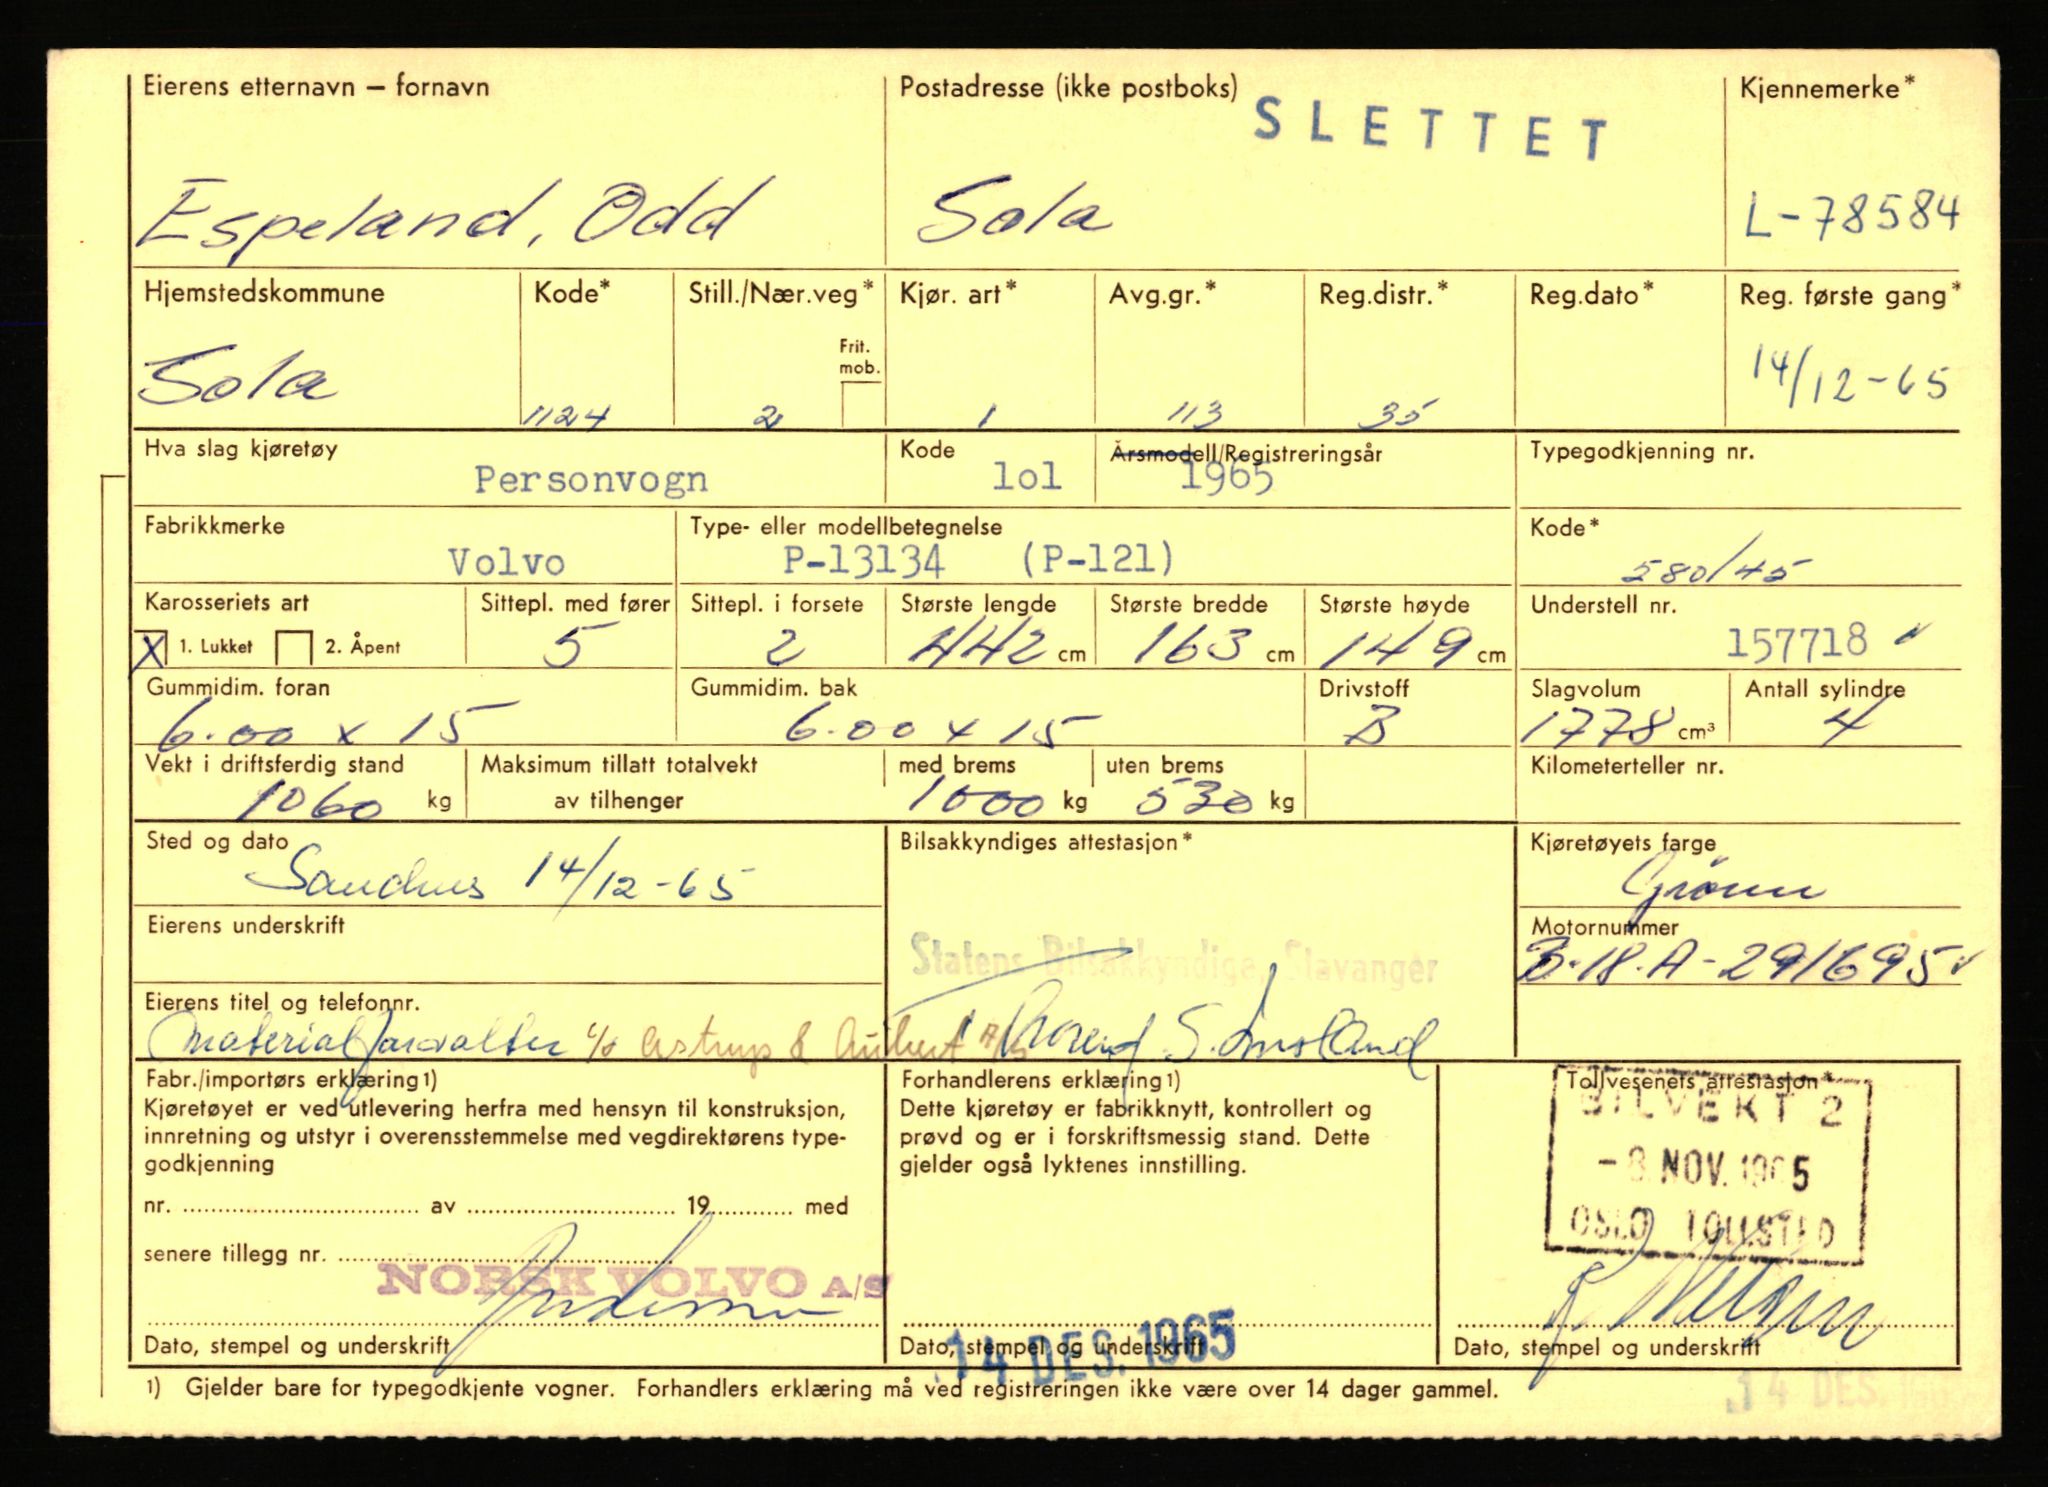 Eierens etternavn – fornavn Postadresse (ikke postboks) Kjennemerke*
SLETTET
Espeland, Odd Sola L-78584
Hjemstedskommune Kode* Still./Nær.veg* Kjør. art* Avg.gr.* Reg.distr.* Reg.dato* Reg. første gang*
Frit. mob.
Sola 1124 2 1 113 35 14/12-65
Hva slag kjøretøy Kode Årsmodell/Registreringsår Typegodkjenning nr.
Personvogn lol 1965
Fabrikkmerke Type- eller modellbetegnelse Kode*
Volvo P-13134 (P-121) 580/45
Karosseriets art Sittepl. med fører Sittepl. i forsete Største lengde Største bredde Største høyde Understell nr.
X 1. Lukket 2. Åpent 5 2 442 cm 163 cm 149 cm 157718
Gummidim. foran Gummidim. bak Drivstoff Slagvolum Antall sylindre
6.00 x 15 6.00 x 15 B 1778 cm³ 4
Vekt i driftsferdig stand Maksimum tillatt totalvekt med brems uten brems Kilometerteller nr.
1060 kg av tilhenger 1000 kg 530 kg
Sted og dato Bilsakkyndiges attestasjon* Kjøretøyets farge
Sandnes 14/12-65 Grønn
Eierens underskrift Motornummer
Statens Bilsakkyndige, Stavanger B.18.A-291695
Eierens titel og telefonnr.
Materialforvalter c/o Astrup & Aubert A/S
Fabr./importørs erklæring1) Forhandlerens erklæring1) Tollvesenets attestasjon*
Kjøretøyet er ved utlevering herfra med hensyn til konstruksjon, Dette kjøretøy er fabrikknytt, kontrollert og BILVEKT 2
innretning og utstyr i overensstemmelse med vegdirektørens type- prøvd og er i forskriftsmessig stand. Dette
godkjenning gjelder også lyktenes innstilling. -8 NOV. 1965
nr. av 19 med OSLO TOLLSTED
senere tillegg nr.
NORSK VOLVO A/S
Dato, stempel og underskrift Dato, stempel og underskrift Dato, stempel og underskrift
14 DES. 1965
1) Gjelder bare for typegodkjente vogner. Forhandlers erklæring må ved registreringen ikke være over 14 dager gammel.
14 DES. 196